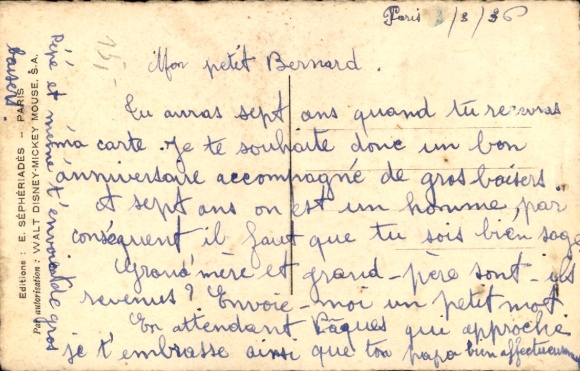 Paris 3/3/36
Mon petit Bernard.
Tu auras sept ans quand tu recevras
ma carte. Je te souhaite donc un bon
anniversaire accompagné de gros baisers
A sept ans on est un homme, par
conséquent il faut que tu sois bien sage
Grand'mère et grand-père sont-ils
revenus? Envoie-moi un petit mot
En attendant Pâques qui approche
je t'embrasse ainsi que ton papa bien affectueusement
Pépé et mémé t'envoient de gros
baisers.
151-
Editions : E. SÉPHÉRIADÈS — PARIS
Par autorisation : WALT DISNEY-MICKEY MOUSE. S.A.